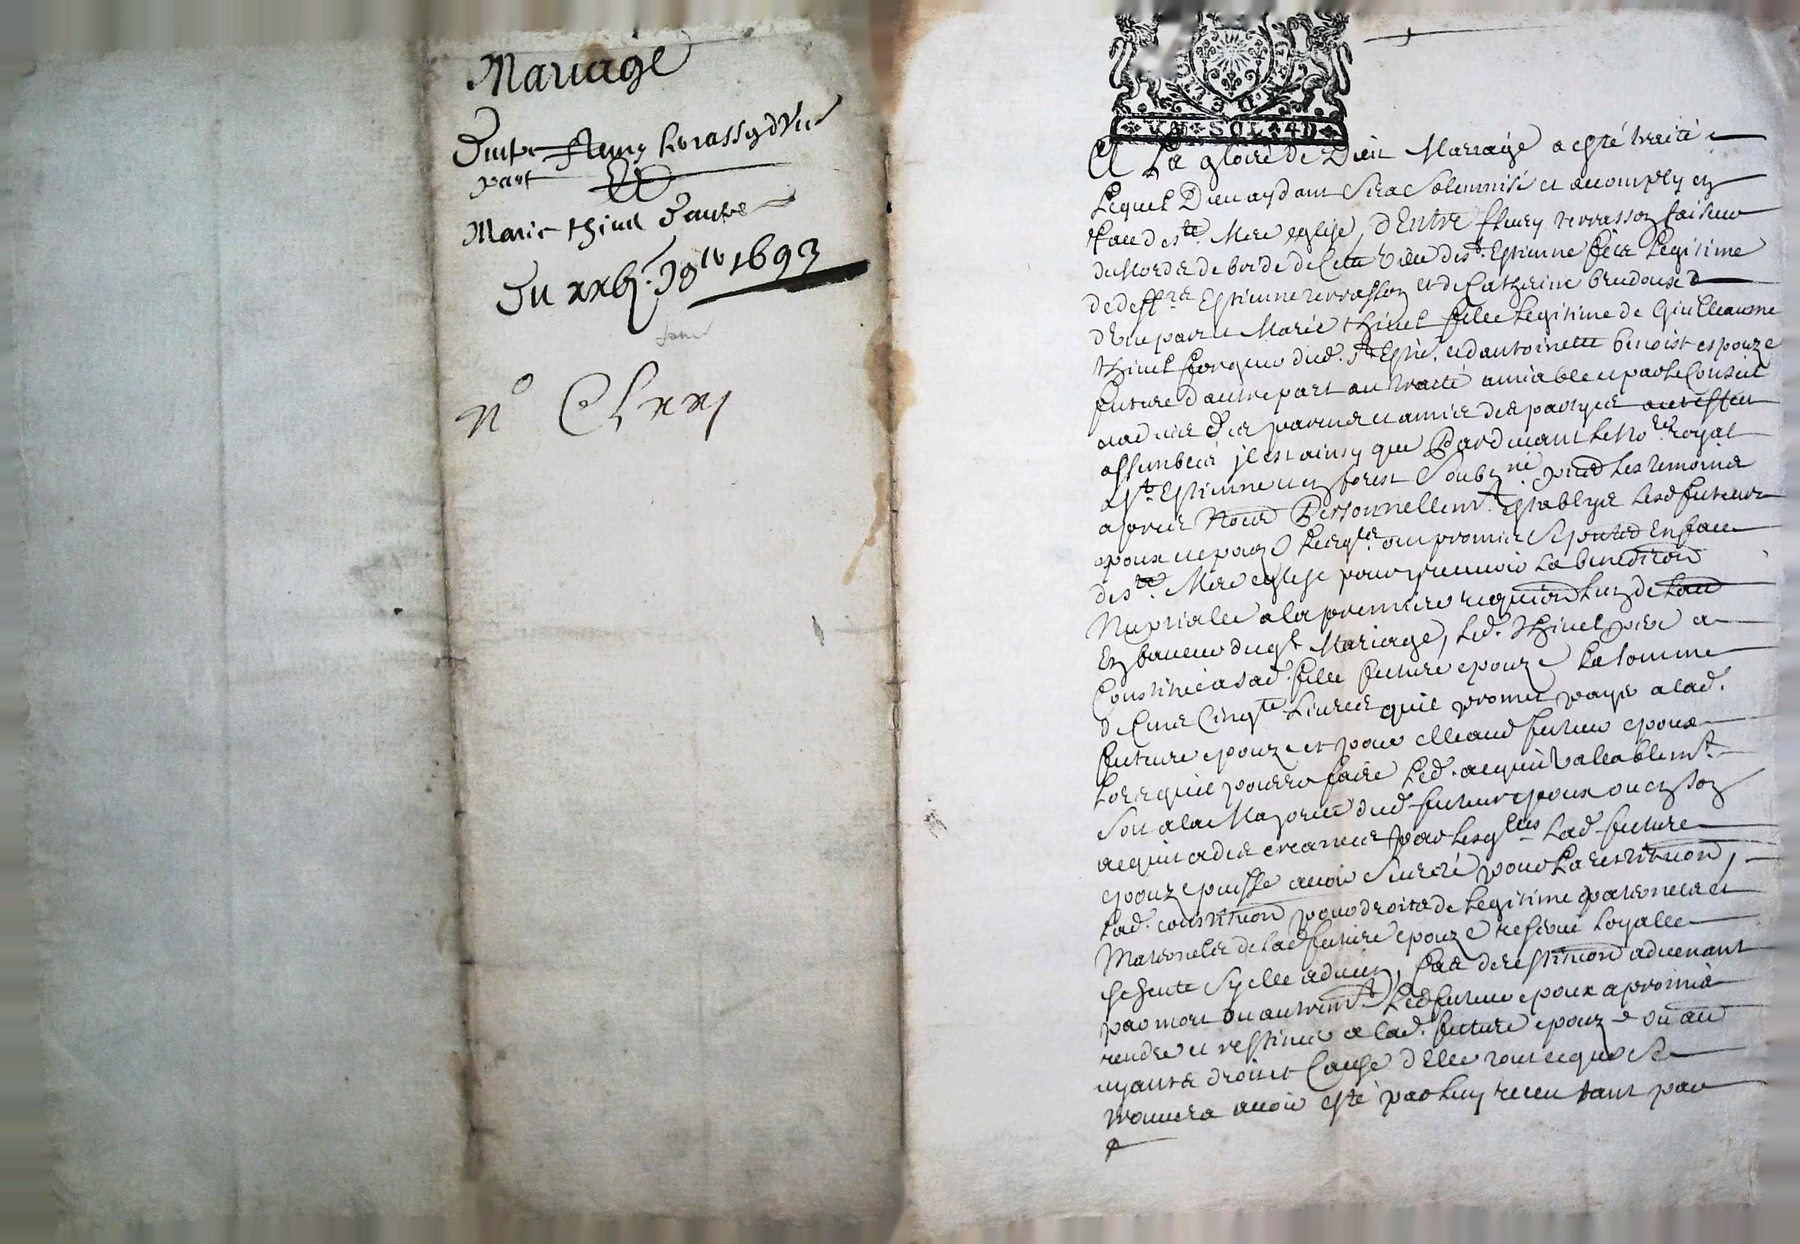 Mariage
Entre fleury terrasson d'Une
part Et
Marie thiuel d'autre
Du xxbj. 9bre 1693
n° Clxxj
UN SOL 4D
A La gloire de Dieu Mariage a esté traité
Lequel Dieu aydant sera solemnisé et accomply en
face de ste. Mere eglise, d'Entre fleury terrasson faiseur
de de Cette Ville de st. Estienne filz Legitime
de defft. Estienne terrasson et de Catherine
d'Une part et Marie thiuel fille Legitime de Guilleaume
thiuel forgeur dud. st. Estie. et d'antoinette benoist espouze
future d'autre part au traité amiable par le Conseil
et aduis des parens et amis des partyes
assembles jl est ainsy que Pardeuant le Nore. royal
a st. Estienne en forest Soubzné. pnt Les temoins
apres nommes Personnellemt. establys Lesd futeurs
epoux et epouze Lesqls. ont promis s'epouser En face
de ste. Mere eglise pour y receuoir La benediction
Nuptialle a la premiere requisition Lun de Lautre
En faueur duql. Mariage, Led. thiuel pere a
Constitué a sad. fille future epouze La somme
de Cinqte. Liures quil promet payer a lad.
future epouze et pour elle aud futeur epoux
Lors quil pourra faire Led. acquit Valeablemt.
Soit a la Majorité dud futeur epoux ou en son
acquit a des creanciers par Lesqlles Lad future
epouze puisse auoir Seureté pour La restitution,
Lad. constitution pour droits de Legitime paternels et
Maternels de Lad future epouze reserué Loyalle
escheute Sy elle aduient, Cas de restitution aduenant
par mort ou autremt. Led futeur epoux a promis
rendre et restituer a Lad. future epouze ou au
ayants droit et Cause d'Elle tout ce que se
trouuera auoir esté par Luy receu tant par